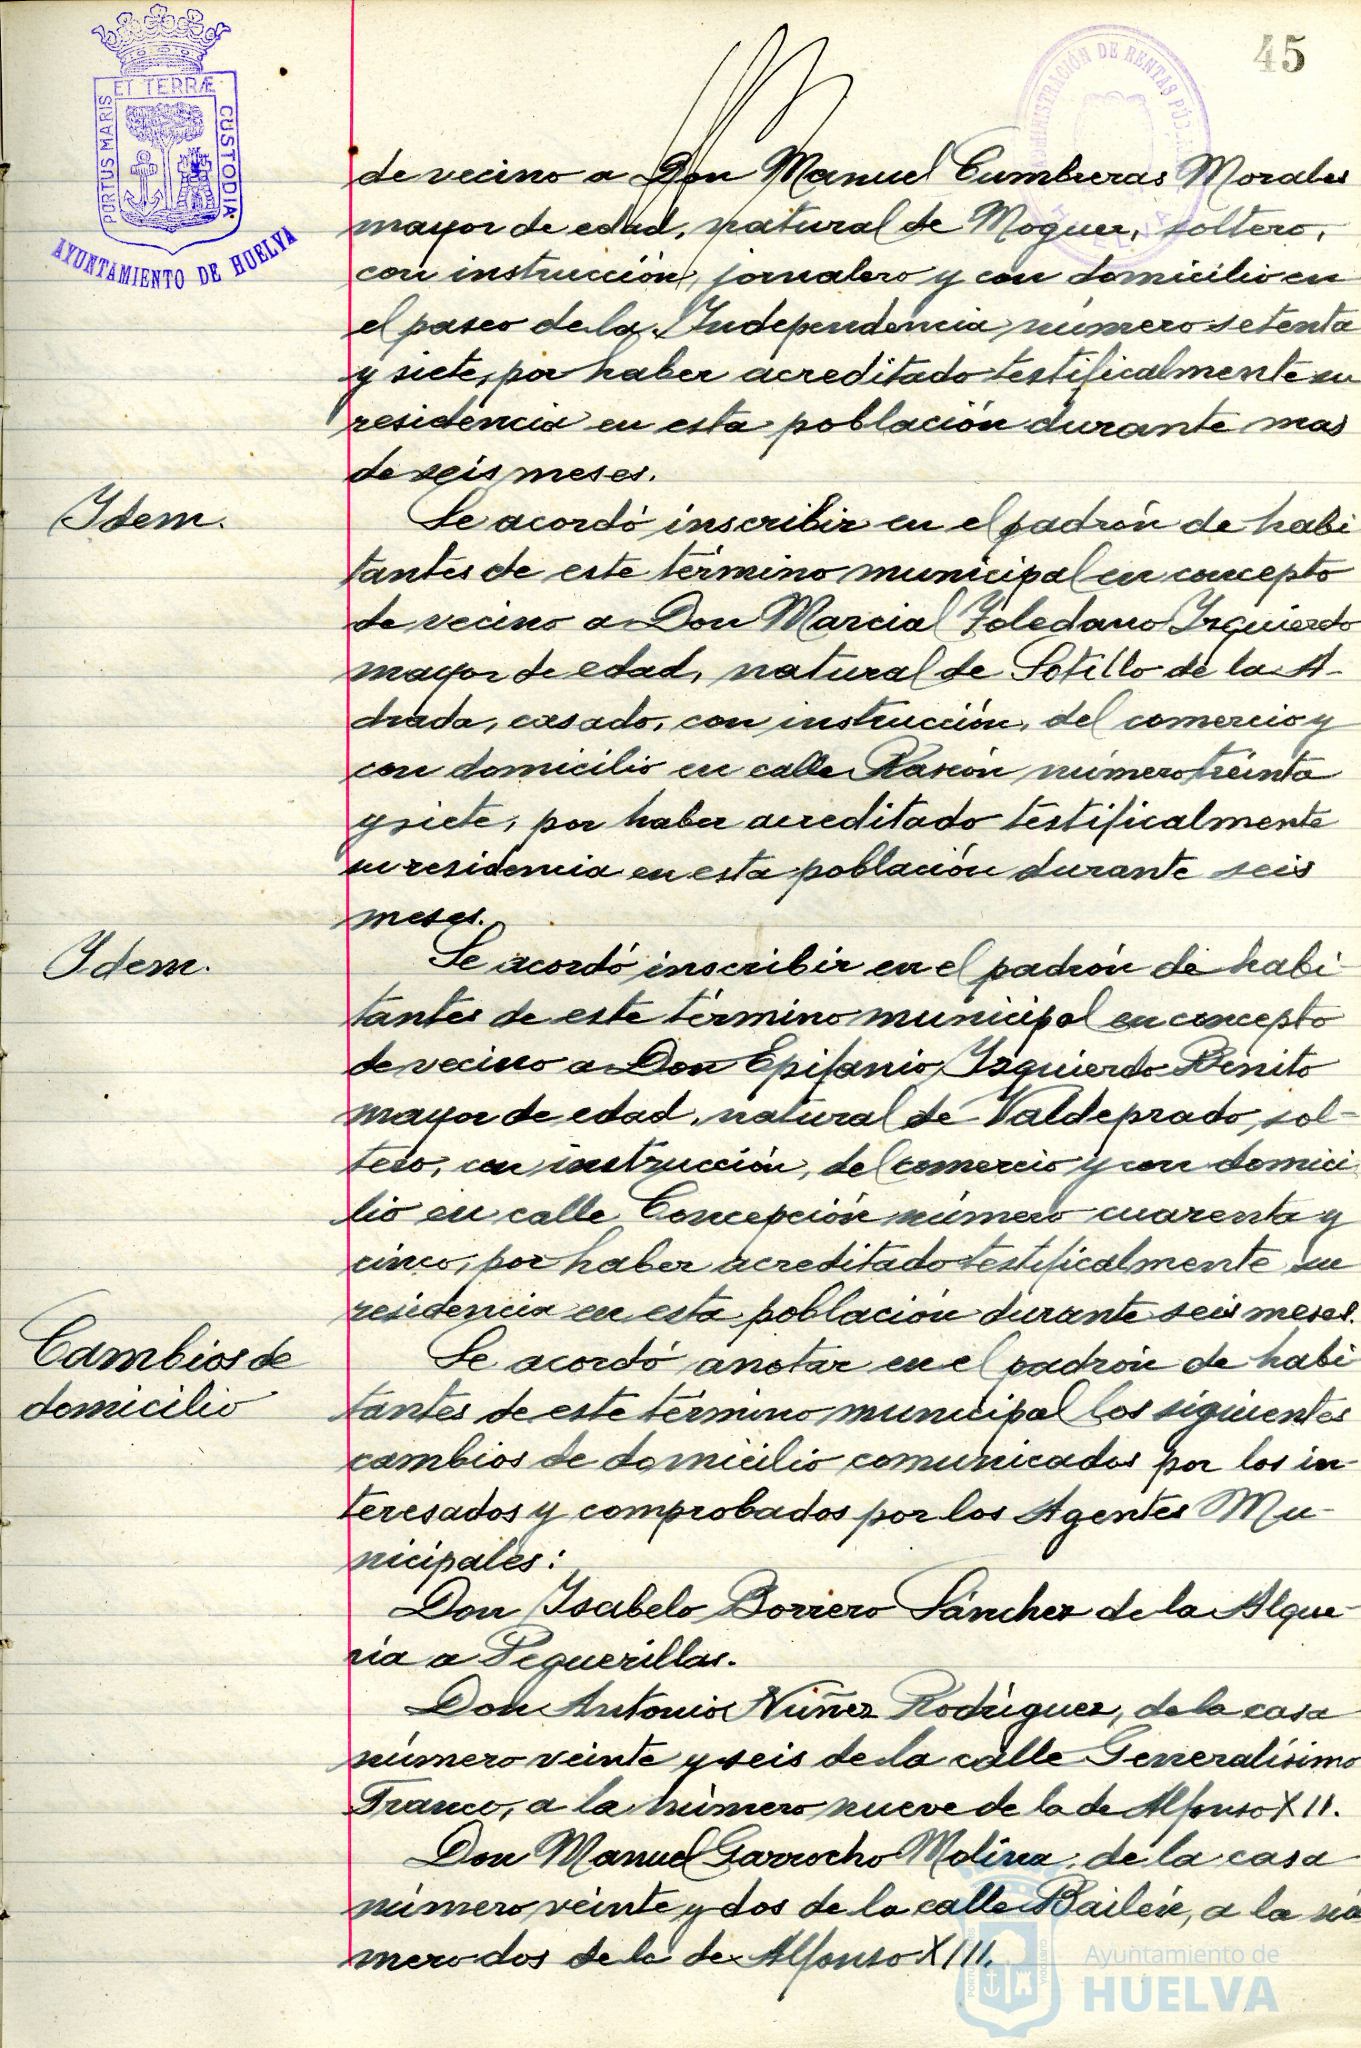 45
PORTUS MARIS
ET TERRÆ
CUSTODIA
AYUNTAMIENTO DE HUELVA
ADMINISTRACIÓN DE RENTAS PÚBLICAS
HUELVA
de vecino a Don Manuel Cumbreras Morales
mayor de edad, natural de Moguer, soltero,
con instrucción, jornalero y con domicilio en
el paseo de la Independencia número setenta
y siete, por haber acreditado testificalmente su
residencia en esta población durante mas
de seis meses.
Idem.
Se acordó inscribir en el padrón de habi
tantes de este término municipal en concepto
de vecino a Don Marcial Toledano Izquierdo
mayor de edad, natural de Sotillo de la A-
drada, casado, con instrucción, del comercio y
con domicilio en calle Rascón número treinta
y siete, por haber acreditado testificalmente
su residencia en esta población durante seis
meses.
Idem.
Se acordó inscribir en el padrón de habi-
tantes de este término municipal en concepto
de vecino a Don Epifanio Izquierdo Benito
mayor de edad, natural de Valdeprado, sol-
tero, con instrucción, del comercio y con domici
lio en calle Concepción número cuarenta y
cinco, por haber acreditado testificalmente su
residencia en esta población durante seis meses.
Cambios de
domicilio
Se acordó anotar en el padrón de habi
tantes de este término municipal los siguientes
cambios de domicilio comunicados por los in-
teresados y comprobados por los Agentes Mu-
nicipales:
Don Isabelo Borrero Sánchez de la Alque-
ría a Peguerillas.
Don Antonio Núñez Rodríguez, de la casa
número veinte y seis de la calle Generalísimo
Franco, a la número nueve de la de Alfonso XII.
Don Manuel Garrocho Molina, de la casa
número veinte y dos de la calle Bailén, a la nú
mero dos de la de Alfonso XIII.
Ayuntamiento de
HUELVA